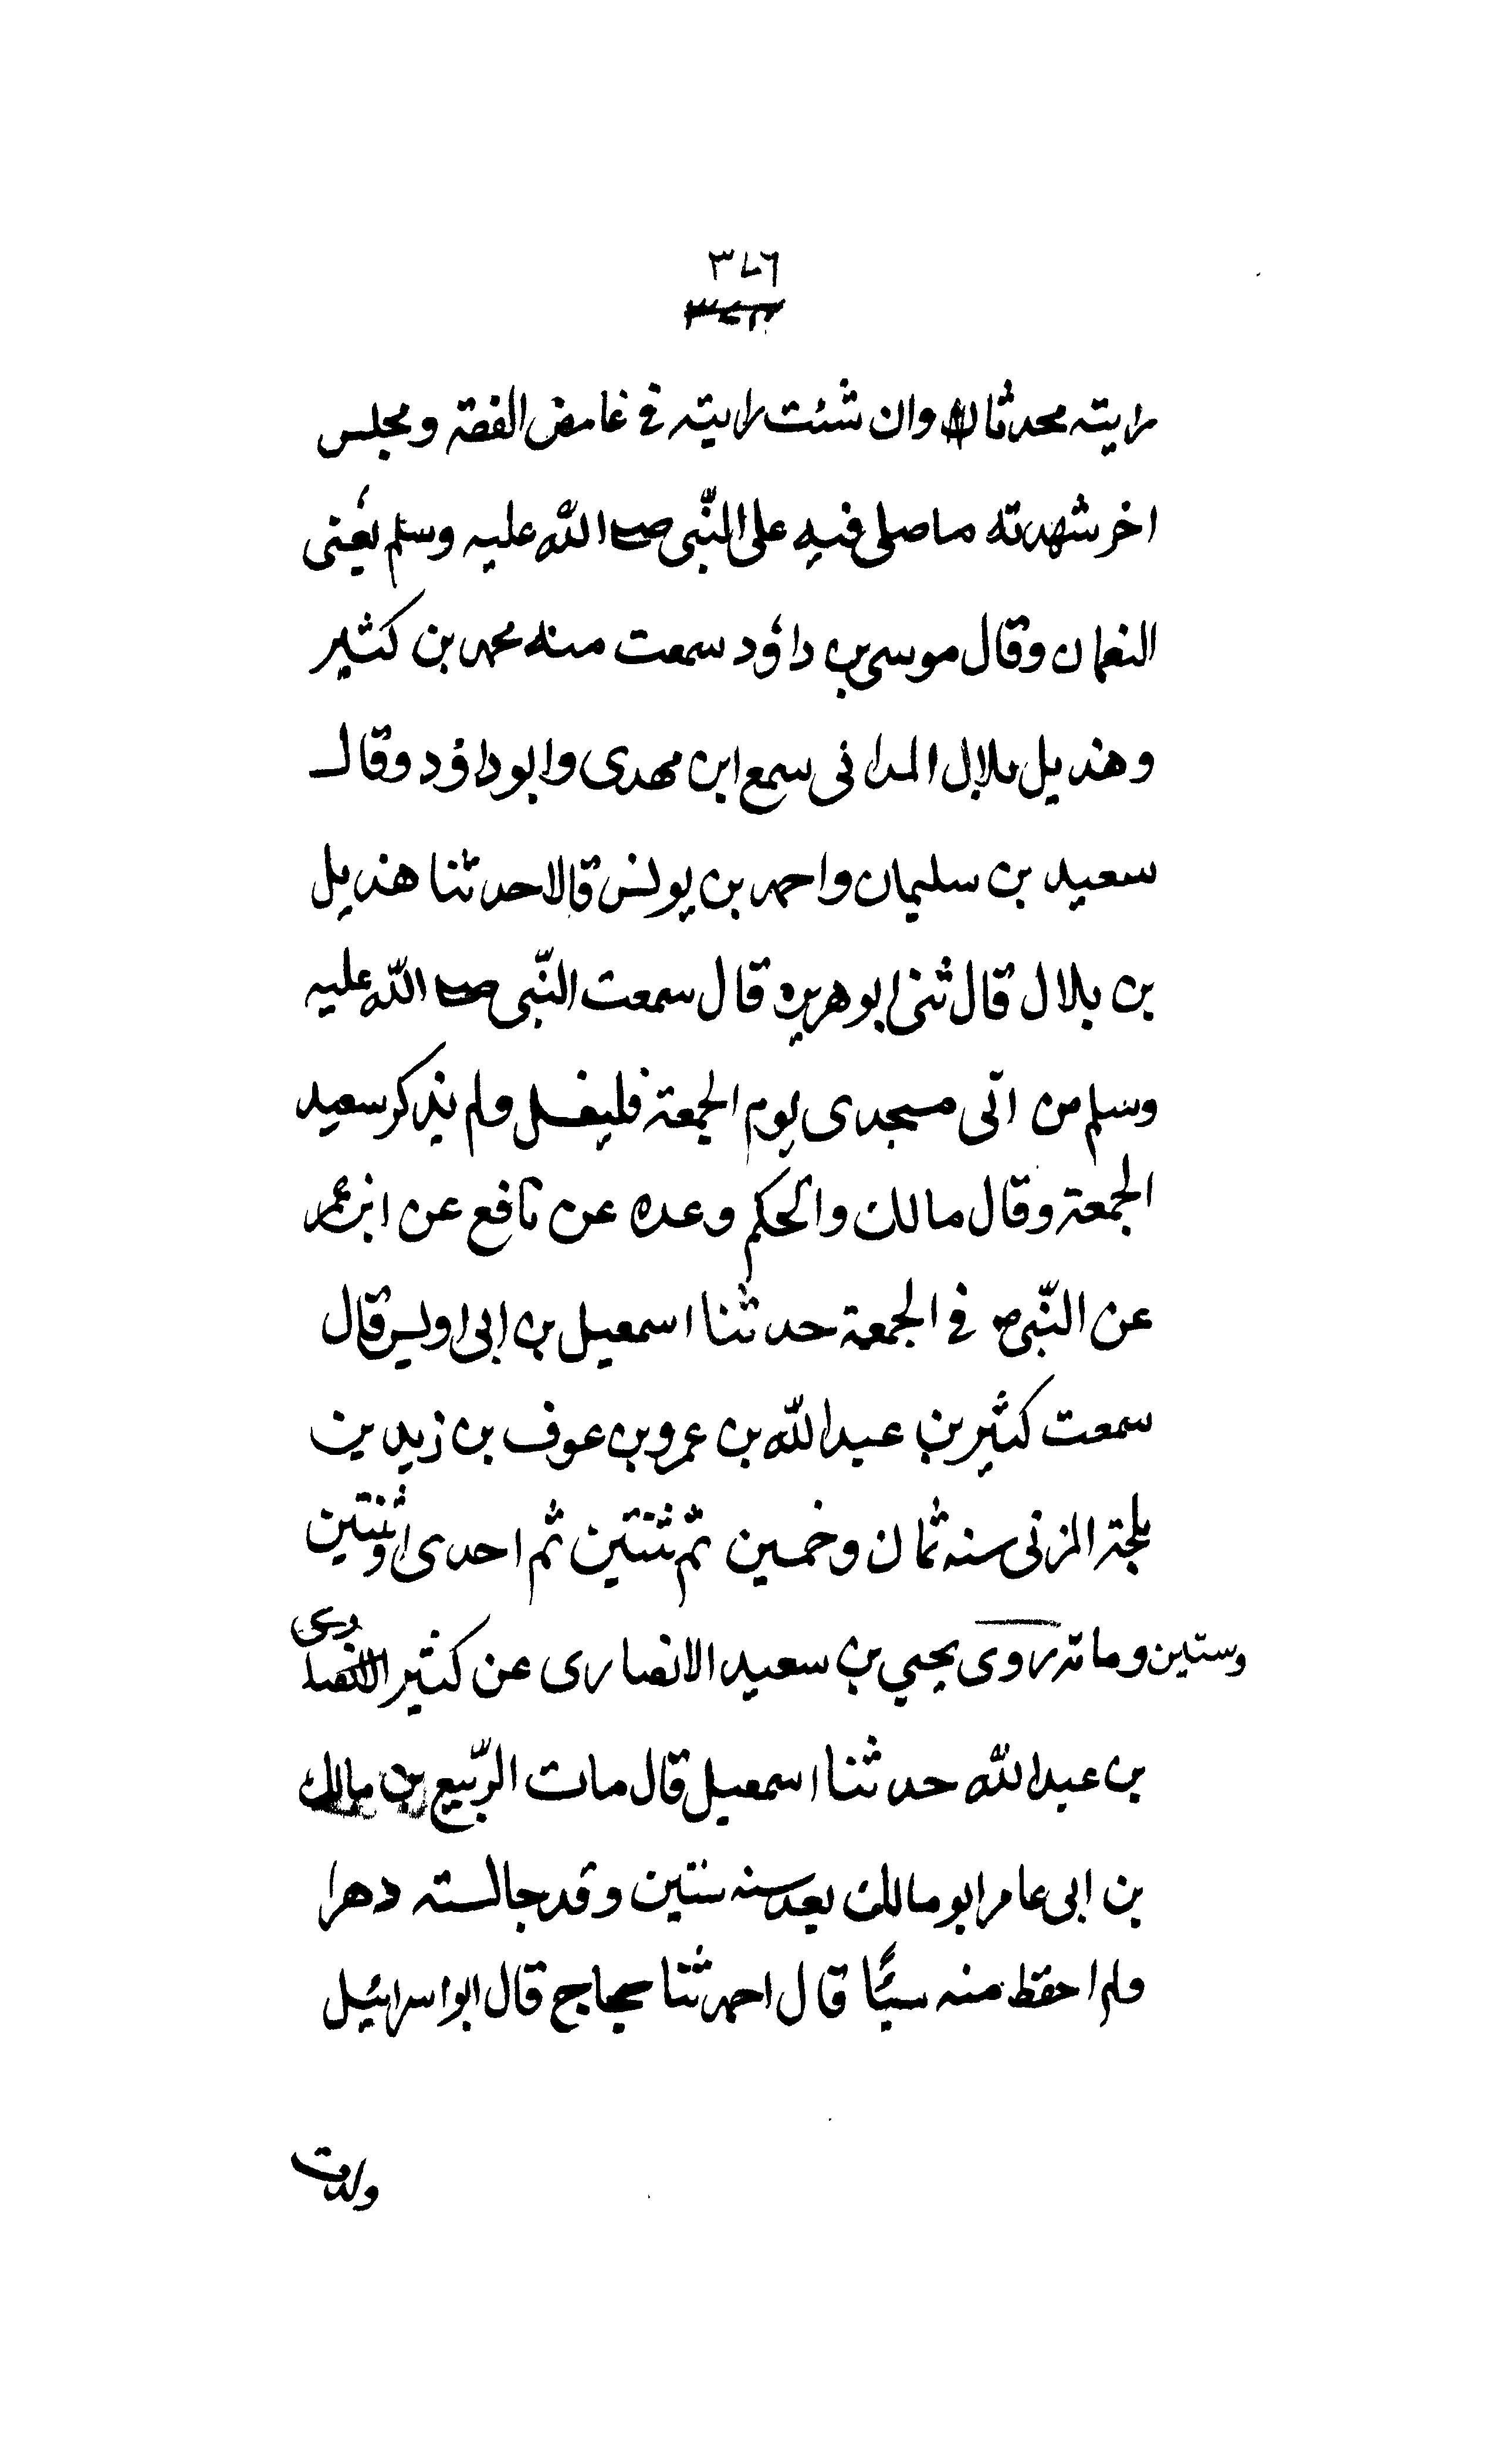 ٣٧٦
رايته محدثا وان شئت رايته في غامض الفقه ومجلس
اخر شهدته ما صلى فيه على النّبى صلى الله عليه وسلم يعنى
النعمان وقال موسى بن داؤد سمعت منه محمد بن كثير
وهذيل بلال المدانى سمع ابن مهدى وابو داؤد وقال
سعيد بن سليمان واحمد بن يونس قالا حدثنا هذيل
بن بلال قال ثنى ابو هريره قال سمعت النّبى صلى الله عليه
وسلم من اتى مسجدى يوم الجمعة فليغسل ولم يذكر سعيد
الجمعة وقال مالك والحكم وعده عن نافع عن ابن عمر
عن النّبى ص في الجمعة حدثنا اسمعيل بن ابى اويس قال
سمعت كثير بن عبد الله بن عمرو بن عوف بن زيد بن
ملحة المزنى سنه ثمان وخمسين ثم ثنتين ثم احدى او ثنتين
وستين ومائة روى يحيي بن سعيد الانصارى عن كثير
بن عبد الله حدثنا اسمعيل قال مات الرّبيع بن مالك
بن ابى عامر ابو مالك بعد سنه ستين وقد جالسته دهرا
ولم احفظ منه سيًّا قال احمد ثنا حجاج قال ابو اسرائيل
ولدت